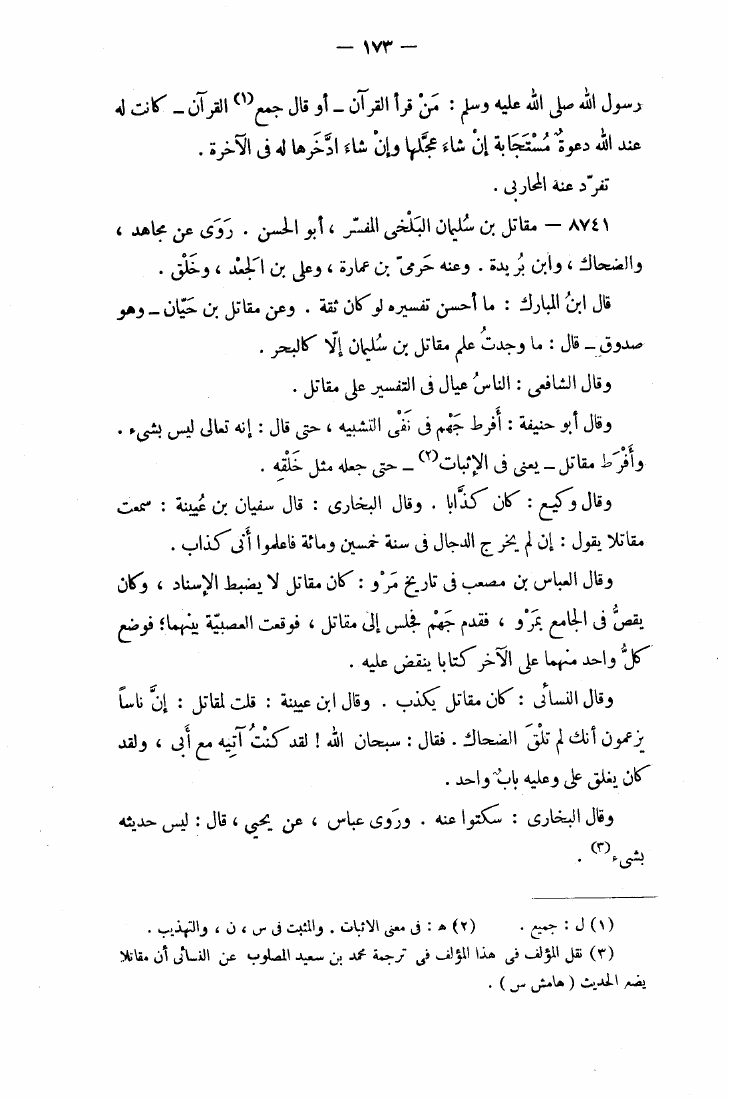 — ١٧٣ —
رسول الله صلى الله عليه وسلم : مَنْ قرأ القرآن ـ أو قال جمع(١) القرآن ـ كانت له
عند الله دعوةٌ مُسْتَجَابة إنْ شاءَ عجَّلها وإنْ شاءَ ادَّخَرها له فى الآخرة .
تفرّد عنه المحاربى .
٨٧٤١ — مقاتل بن سُليمان البَلْخى المفسّر ، أبو الحسن . رَوَى عن مجاهد ،
والضحاك ، وابن بُريدة . وعنه حَرمىّ بن عمارة ، وعلى بن الجعْد ، وخَلْق .
قال ابنُ المبارك : ما أحسن تفسيره لو كان ثقة . وعن مقاتل بن حَيّان ـ وهو
صدوق ـ قال : ما وجدتُ علم مقاتل بن سُليمان إلّا كالبحر .
وقال الشافعى : الناسُ عيال فى التفسير على مقاتل .
وقال أبو حنيفة : أَفرط جَهْم فى نَفْى التشبيه ، حتى قال : إنه تعالى ليس بشىء .
وأَفْرَط مقاتل ـ يعنى فى الإثبات(٢) ـ حتى جعله مثل خَلْقه .
وقال وكيع : كان كذَّابا . وقال البخارى : قال سفيان بن عُيينة : سمعت
مقاتلا يقول : إن لم يخرج الدجال فى سنة خمسين ومائة فاعلموا أنى كذاب .
وقال العباس بن مصعب فى تاريخ مَرْو : كان مقاتل لا يضبط الإسناد ، وكان
يقصُّ فى الجامع بمَرْو ، فقدم جَهْم فجلس إلى مقاتل ، فوقعت العصبيّة بينهما؛ فوضع
كلُّ واحد منهما على الآخر كتابا ينقض عليه .
وقال النسأئى : كان مقاتل يكذب . وقال ابن عيينة : قلت لمقاتل : إنَّ ناساً
يزعمون أنك لم تلْقَ الضحاك . فقال : سبحان الله ! لقد كنْتُ آتِيه مع أَبى ، ولقد
كان يغلق على وعليه بابٌ واحد .
وقال البخارى : سكتوا عنه . ورَوى عباس ، عن يحيى ، قال : ليس حديثه
بشىء(٣) .
(١) ل : جميع . (٢) ه : فى معنى الاثبات . والمثبت فى س ، ن ، والتهذيب .
(٣) نقل المؤلف فى هذا المؤلف فى ترجمة محمد بن سعيد المصلوب عن النسائى أن مقاتلا
يضع الحديث ( هامش س ) .